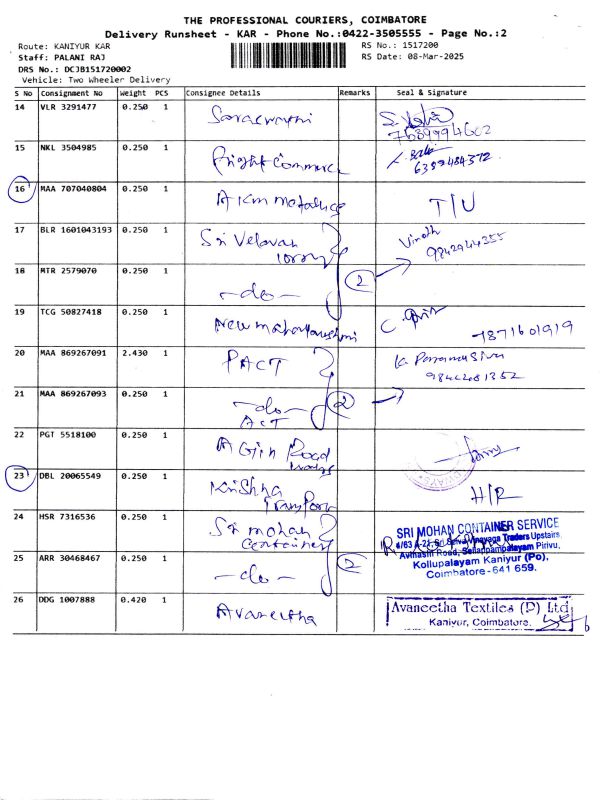 THE PROFESSIONAL COURIERS, COIMBATORE
Delivery Runsheet - KAR - Phone No.:0422-3505555 - Page No.:2
Route: KANIYUR KAR
RS No.: 1517200
Staff: PALANI RAJ
RS Date: 08-Mar-2025
DRS No.: DCJB151720002
Vehicle: Two Wheeler Delivery
S No Consignment No Weight PCS Consignee Details Remarks Seal & Signature
14 VLR 3291477 0.250 1 Saraswathi
7639994602
15 NKL 3504985 0.250 1 Bright Commerce
6389484372
16 MAA 707040804 0.250 1 AKM Metallics T/U
17 BLR 1601043193 0.250 1 Sri Velavan Vinoth
lorry 9842944355
18 MTR 2579070 0.250 1 -do- 2
19 TCG 50827418 0.250 1 New Mahalakshmi
7871601919
20 MAA 869267091 2.430 1 PACT
21 MAA 869267093 0.250 1 -do- 2
ACT
22 PGT 5518100 0.250 1 Road
23 DBL 20065549 0.250 1 Krishna H/R
Transport
24 HSR 7316536 0.250 1 Sri Mohan
Container
SRI MOHAN CONTAINER SERVICE
Avinashi Road, Sellappampalayam Pirivu,
Kollupalayam Kaniyur (Po),
Coimbatore-641 659.
25 ARR 30468467 0.250 1 -do- 2
26 DDG 1007888 0.420 1 Avaneetha
Avaneetha Textiles (P) Ltd
Kaniyur, Coimbatore.